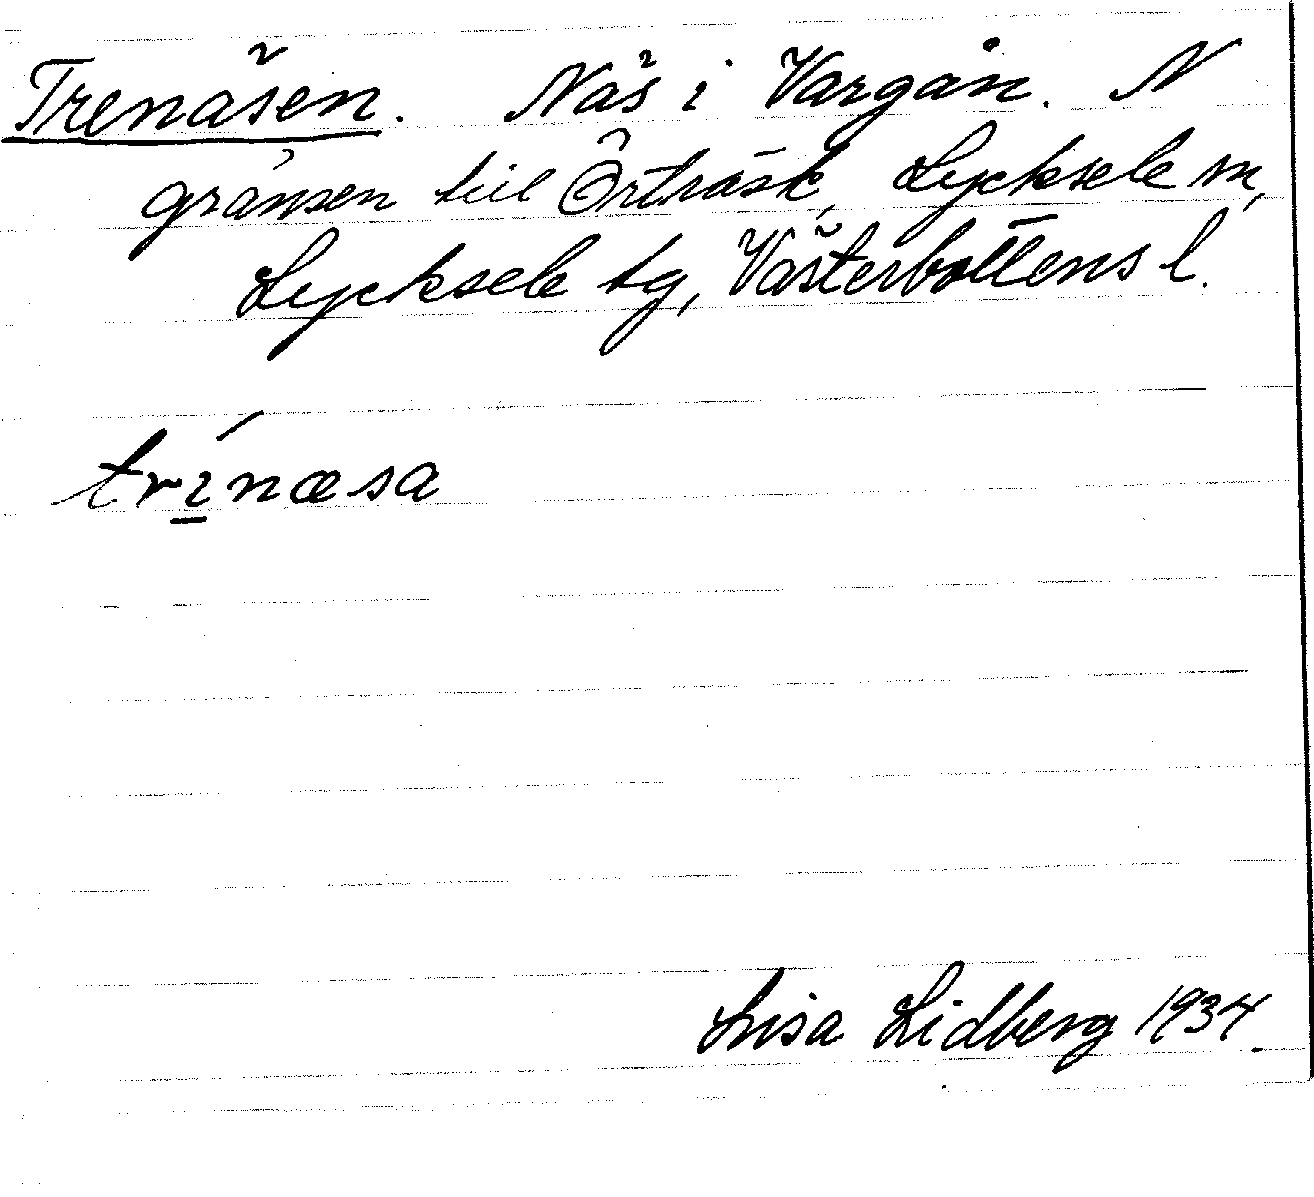 Trenäsen. Näs i Vargån. N
gränsen till Örträsk, Lycksele sn,
Lycksele tg, Västerbottens l.
trínæsa
Lisa Lidberg 1934.